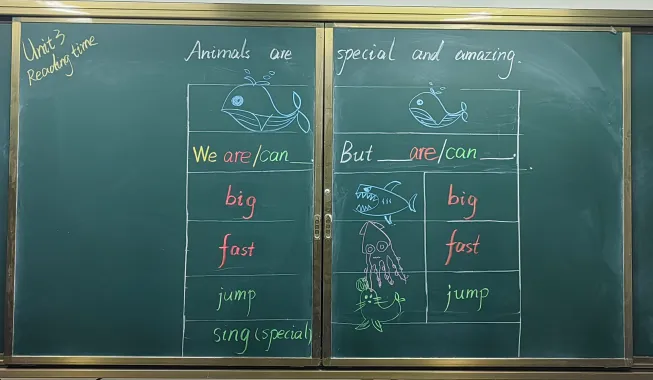 Unit 3
Reading time
Animals are special and amazing.
We are/can__.
But __are/can __.
big
fast
jump
sing (special)
big
fast
jump